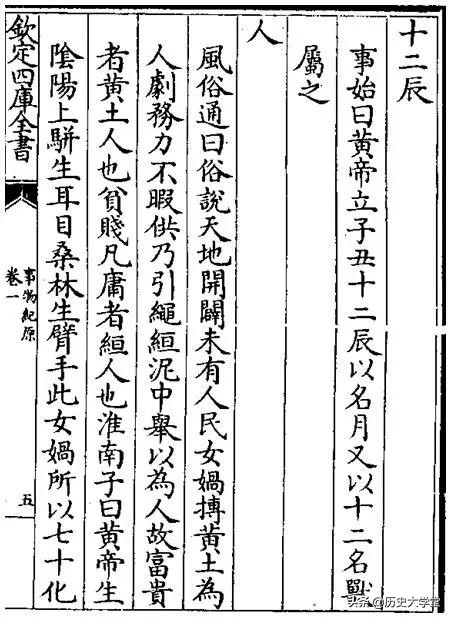 十二辰
事始曰黄帝立子丑十二辰以名月又以十二名獸
屬之
人
風俗通曰俗說天地開闢未有人民女媧摶黄土為
人劇務力不暇供乃引繩絙泥中舉以為人故富貴
者黄土人也貧賤凡庸者絙人也淮南子曰黄帝生
陰陽上駢生耳目桑林生臂手此女媧所以七十化
欽定四庫全書
事物紀原
卷一
五
头条@历史大学堂